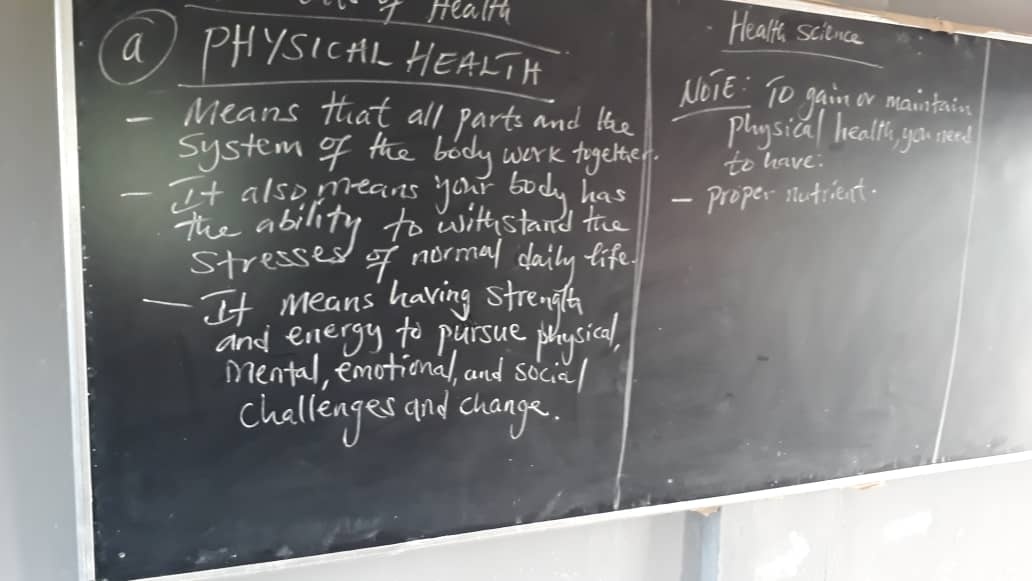 of Health
(a) PHYSICAL HEALTH
- Means that all parts and the
system of the body work together.
- It also means your body has
the ability to withstand the
stresses of normal daily life.
- It means having strength
and energy to pursue physical,
mental, emotional, and social
challenges and change.
Health science
NOTE: To gain or maintain
physical health, you need
to have:
- proper nutrient.